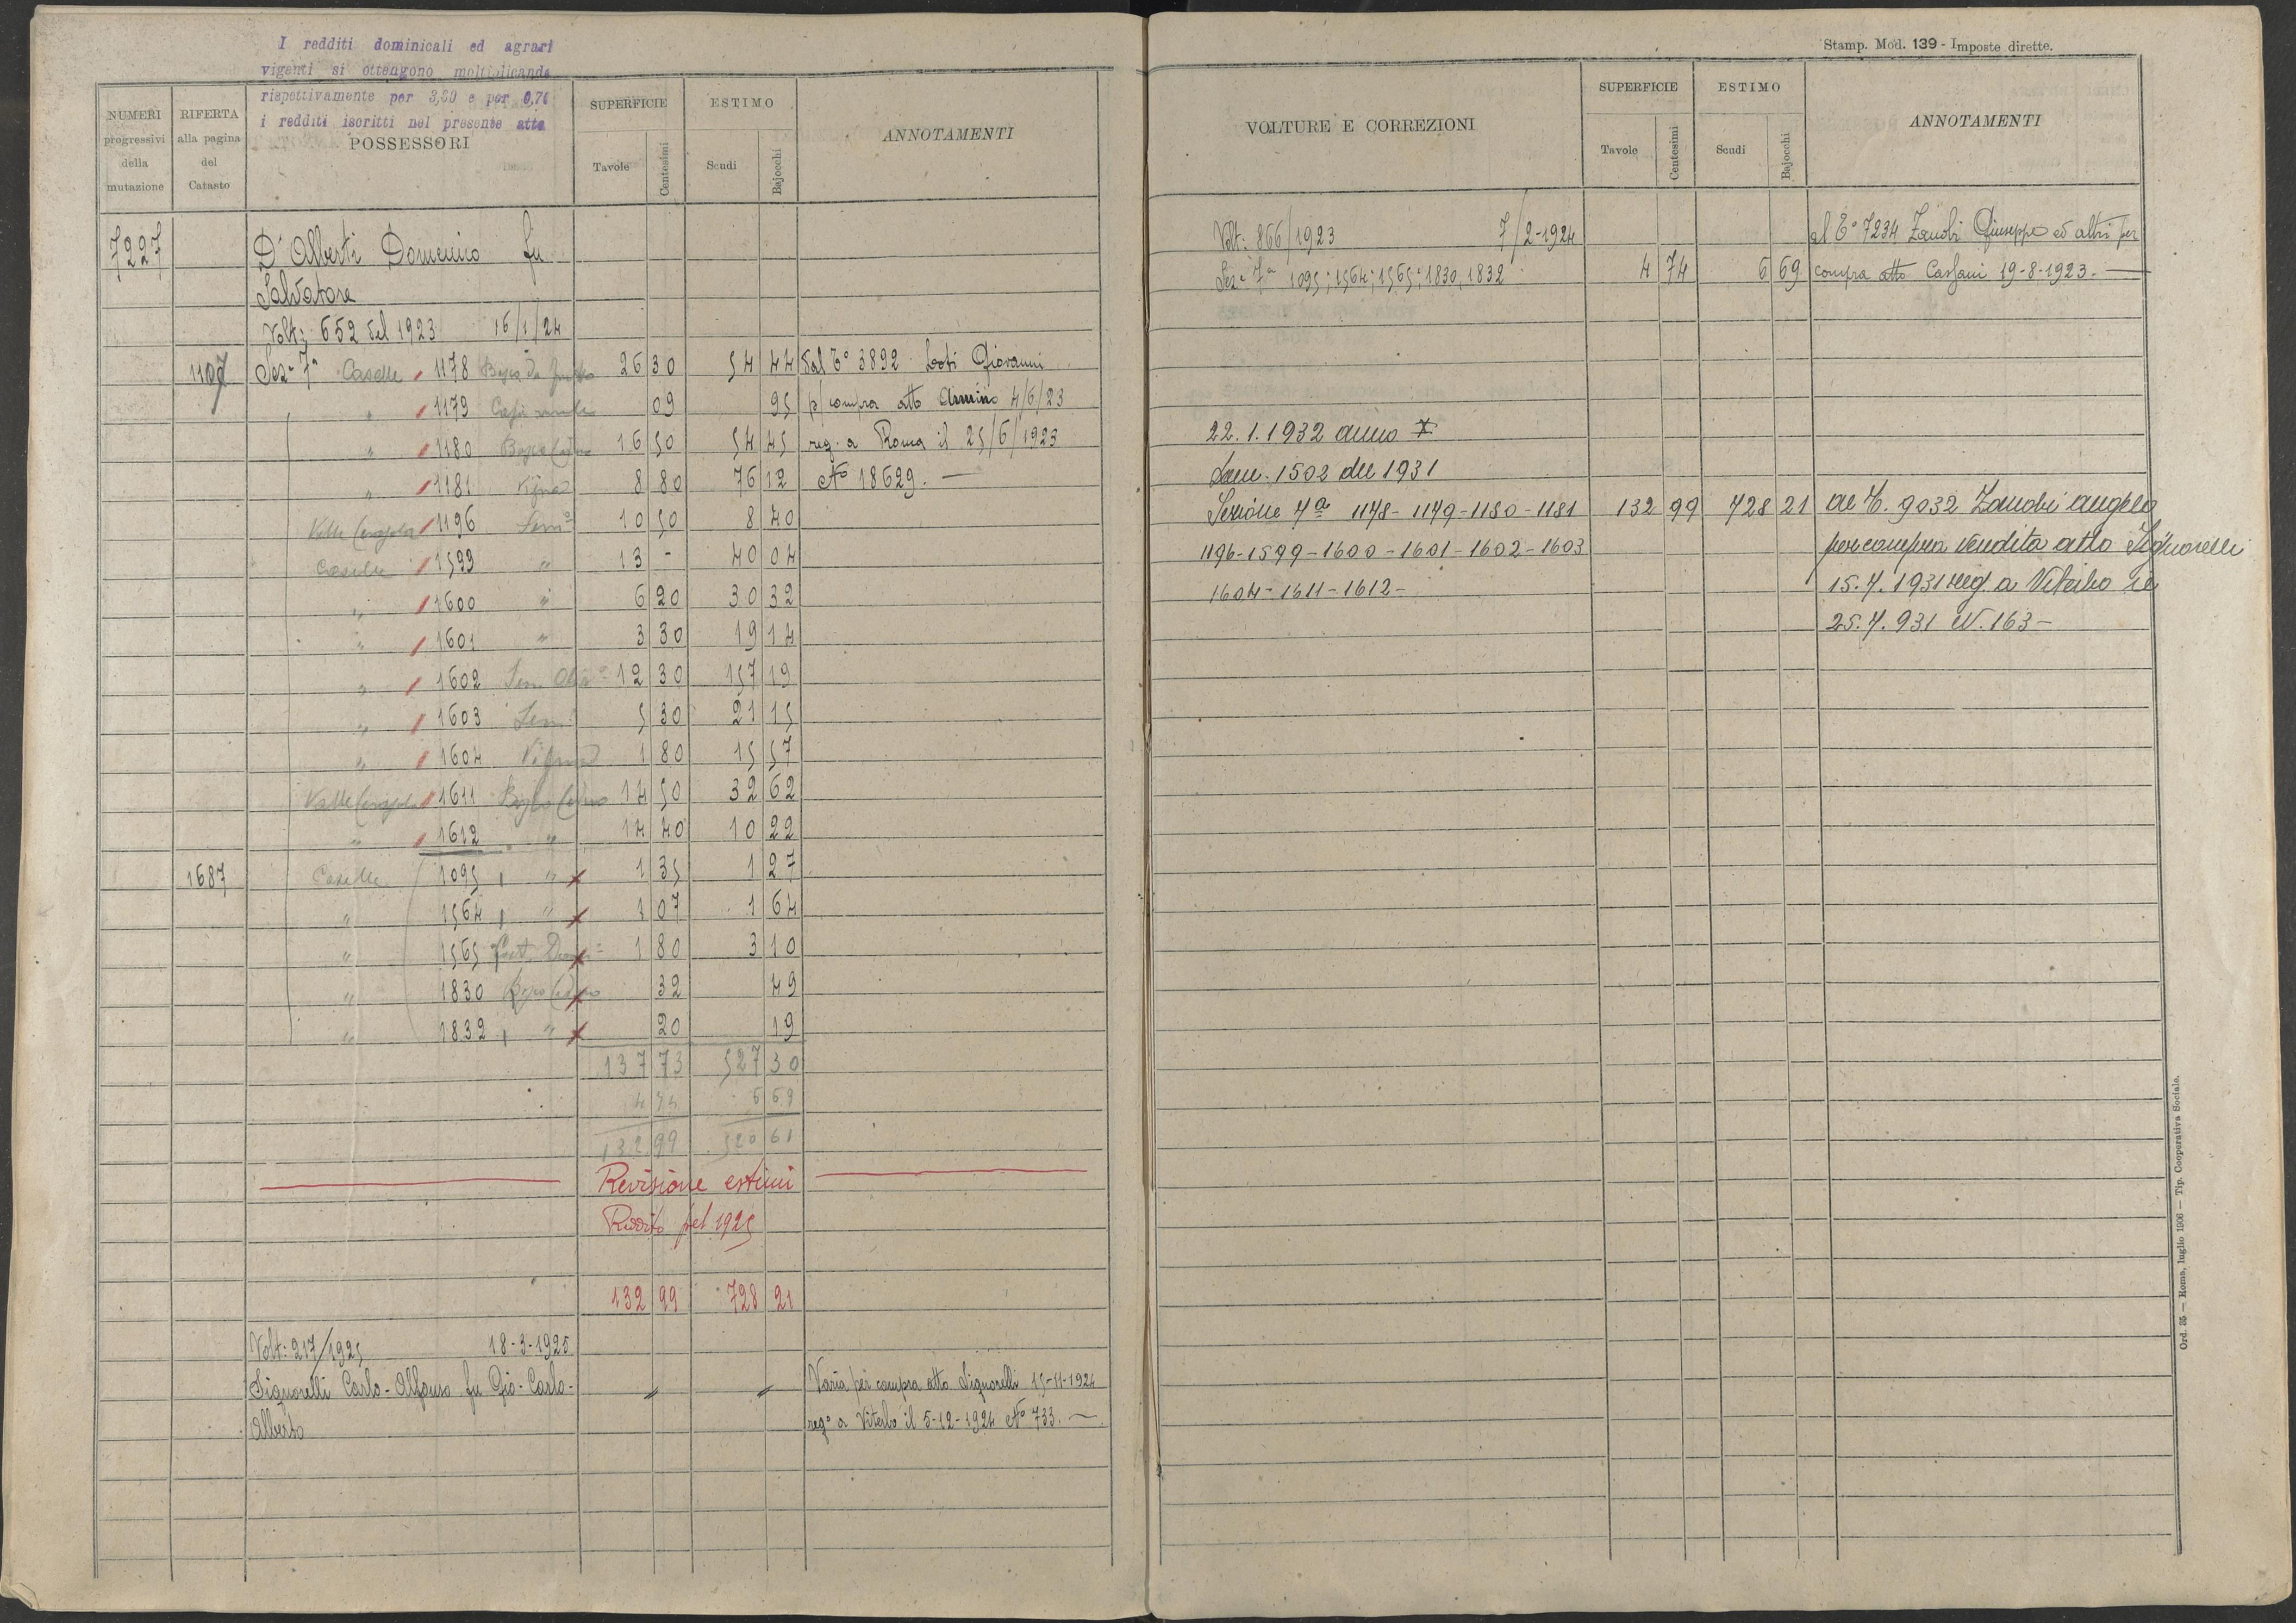 I redditi dominicali ed agrari
vigenti si ottengono moltiplicando
rispettivamente per 3,60 e per 0,70
i redditi iscritti nel presente atto
NUMERI progressivi della mutazione
RIFERTA alla pagina del Catasto
POSSESSORI
SUPERFICIE
Tavole Centesimi
ESTIMO
Scudi Bajocchi
ANNOTAMENTI
7227 D'Alberti Domenico fu
Salvatore
Volt: 652 del 1923 16/1/24
1107 Sez. 7a Caselle 1178 26 30 54 44 dal Co 3892 Loti Giovanni
" 1179 09 95 p/ compra atto Armino 4/6/23
" 1180 16 50 54 45 reg. a Roma il 25/6/1923
" 1181 Vigna 8 80 76 12 No 18629. —
Valle 1196 Sem. 10 50 8 40
Caselle 1599 " 13 - 40 04
" 1600 " 6 20 30 32
" 1601 " 3 30 19 14
" 1602 Sem. 12 30 157 19
" 1603 Sem. 5 30 21 15
" 1604 Vigna 1 80 15 57
Valle 1611 14 50 32 62
" 1612 " 14 40 10 22
1687 Caselle 1095 " 1 35 1 27
" 1564 " 1 07 1 64
" 1565 1 80 3 10
" 1830 32 49
" 1832 " 20 19
137 73 527 30
4 74 6 69
132 99 520 61
Revisione estimi
Reddito pel 1925
132 99 728 21
Volt: 217/1925 18-3-1925
Signorelli Carlo-Alfonso fu Gio-Carlo- " " Varia per compra atto Signorelli 15-11-1924
Alberto rego a Viterbo il 5-12-1924 No 733. —
Stamp. Mod. 139 - Imposte dirette.
VOLTURE E CORREZIONI
SUPERFICIE
Tavole Centesimi
ESTIMO
Scudi Bajocchi
ANNOTAMENTI
Volt: 866/1923 7/2-1924 al Co 7234 Zanobi Giuseppe ed altri per
Sez. 7a 1095; 1564; 1565; 1830, 1832 4 74 6 69 compra atto Cassani 19-8-1923. —
22.1.1932 anno X
1502 del 1931
Sezione 7a 1178-1179-1180-1181 132 99 728 21 al C. 9032 Zanobi Angelo
1196-1599-1600-1601-1602-1603 per compra vendita atto Signorelli
1604-1611-1612- 15.7.1931 reg. a Viterbo il
25.7.931 N. 163-
Ord. 35 — Roma, luglio 1906 — Tip. Cooperativa Sociale.